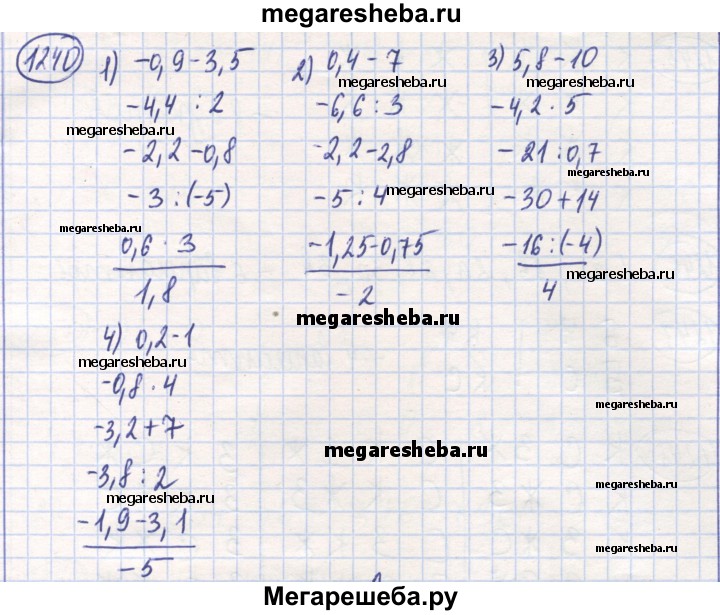 megaresheba.ru
1240
1) -0,9-3,5
-4,4 : 2
megaresheba.ru
-2,2-0,8
-3:(-5)
megaresheba.ru
0,6 · 3
1,8
2) 0,4-7
megaresheba.ru
-6,6:3
-2,2-2,8
-5:4
megaresheba.ru
-1,25-0,75
-2
megaresheba.ru
3) 5,8-10
megaresheba.ru
-4,2 · 5
-21:0,7
megaresheba.ru
-30+14
-16:(-4)
megaresheba.ru
4
4) 0,2-1
megaresheba.ru
-0,8 · 4
-3,2+7
-3,8:2
megaresheba.ru
-1,9-3,1
-5
megaresheba.ru
megaresheba.ru
megaresheba.ru
megaresheba.ru
Мегарешеба.ру